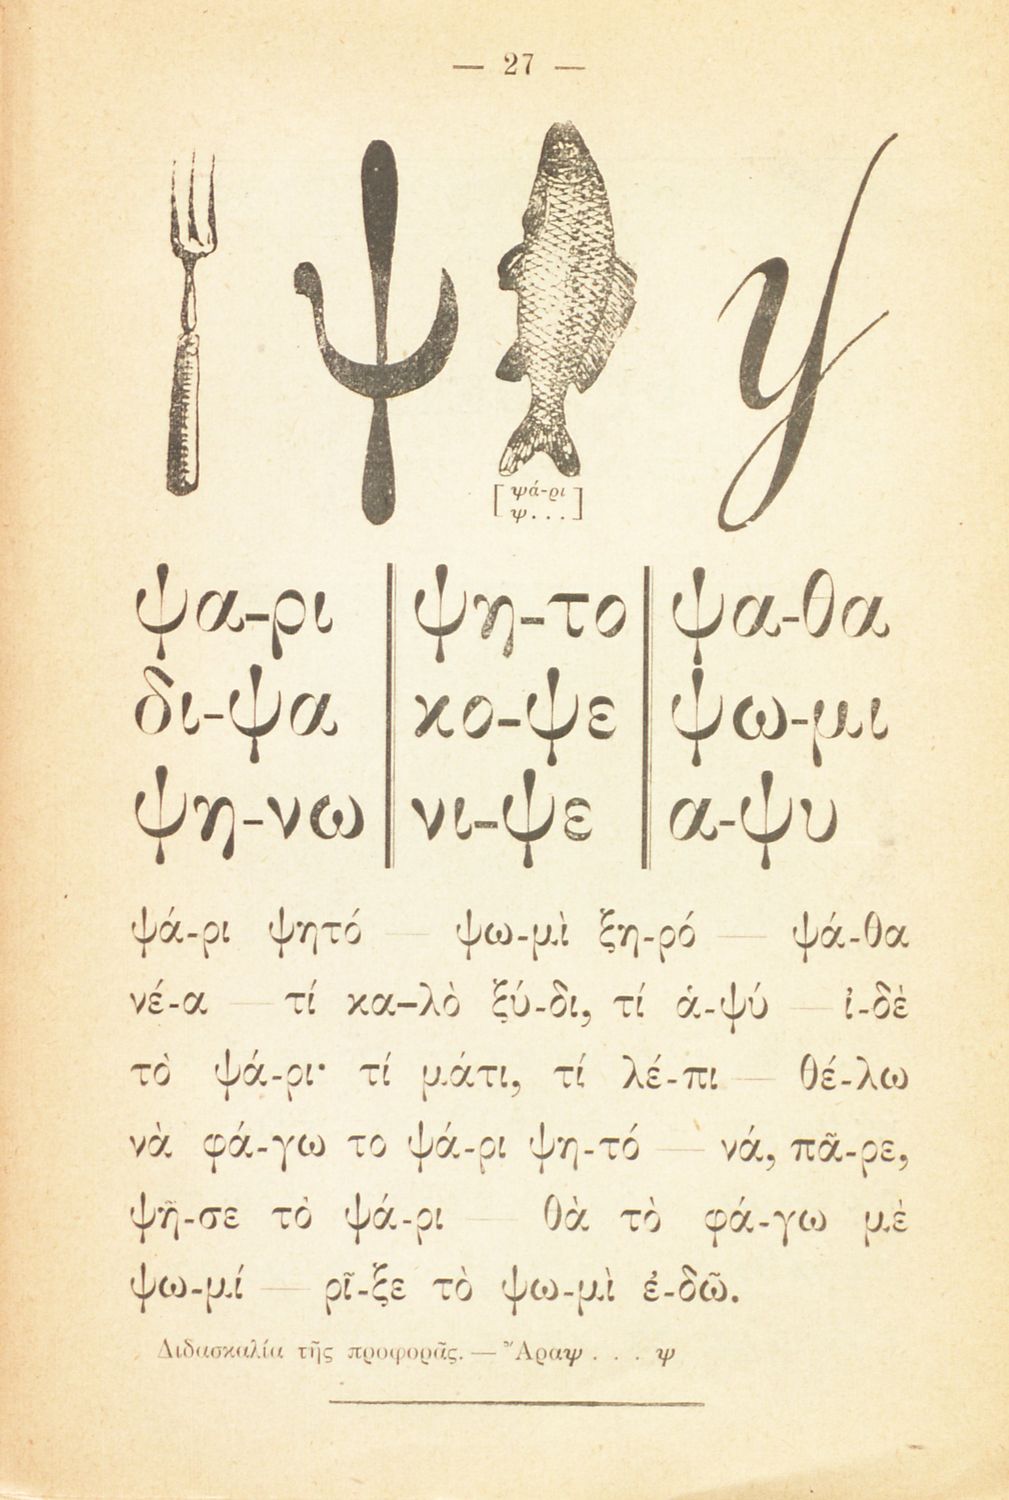 — 27 —
ψ y
[ψά-ρι
ψ...]
ψα-ρι ψη-το ψα-θα
δι-ψα κο-ψε ψω-μι
ψη-νω νι-ψε α-ψυ
ψά-ρι ψητό — ψω-μὶ ξη-ρό — ψά-θα
νέ-α — τί κα-λὸ ξύ-δι, τί ἁ-ψύ — ἰ-δὲ
τὸ ψά-ρι· τί μάτι, τί λέ-πι — θέ-λω
νὰ φά-γω το ψά-ρι ψη-τό — νά, πᾶ-ρε,
ψῆ-σε τὸ ψά-ρι — θὰ τὸ φά-γω μὲ
ψω-μί — ρῖ-ξε τὸ ψω-μὶ ἐ-δῶ.
Διδασκαλία τῆς προφορᾶς. — Ἄραψ . . . ψ